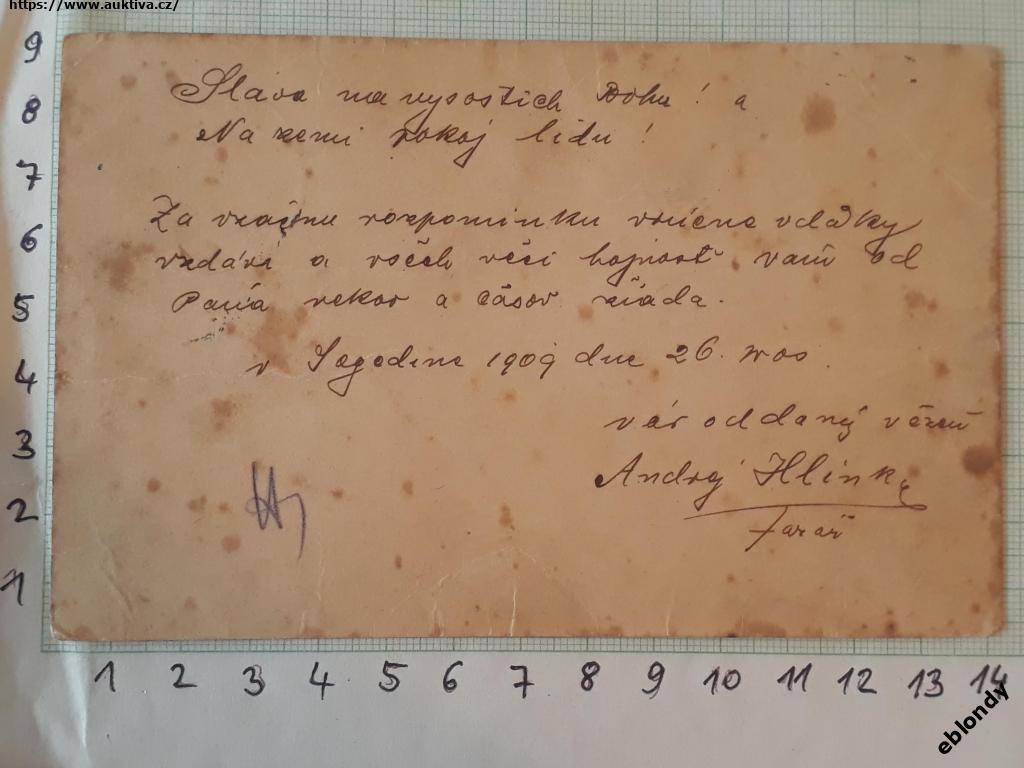 https://www.auktiva.cz/
Sláva na vysostich Bohu! a
Na zemi pokoj lidu!
Za vzácnu rozpominku vdàky
vzdává a všech věci hojnost vam od
Pana a časov žiada.
v Segedine 1909 dne 26. pros.
vás oddaný vězeň
Andrej Hlinka
farář
9
8
7
6
5
4
3
2
1
1 2 3 4 5 6 7 8 9 10 11 12 13 14
eblondy